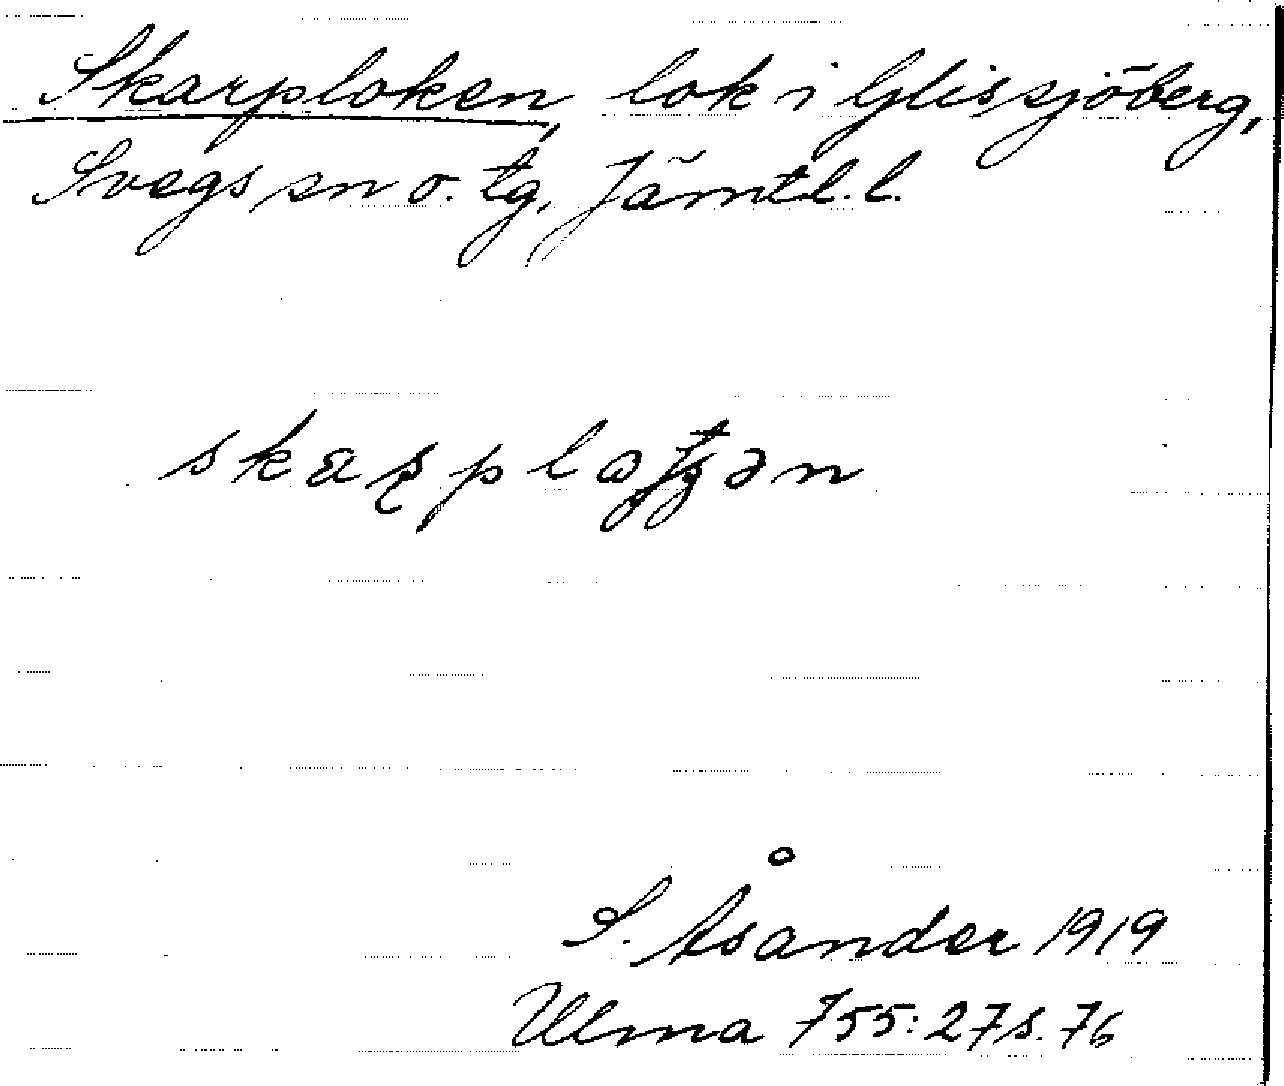 Skarploken, lok i Glissjöberg,
Svegs sn o. tg, Jämtl. l.
S. Åsander 1919
Ulma 755:27 s. 76